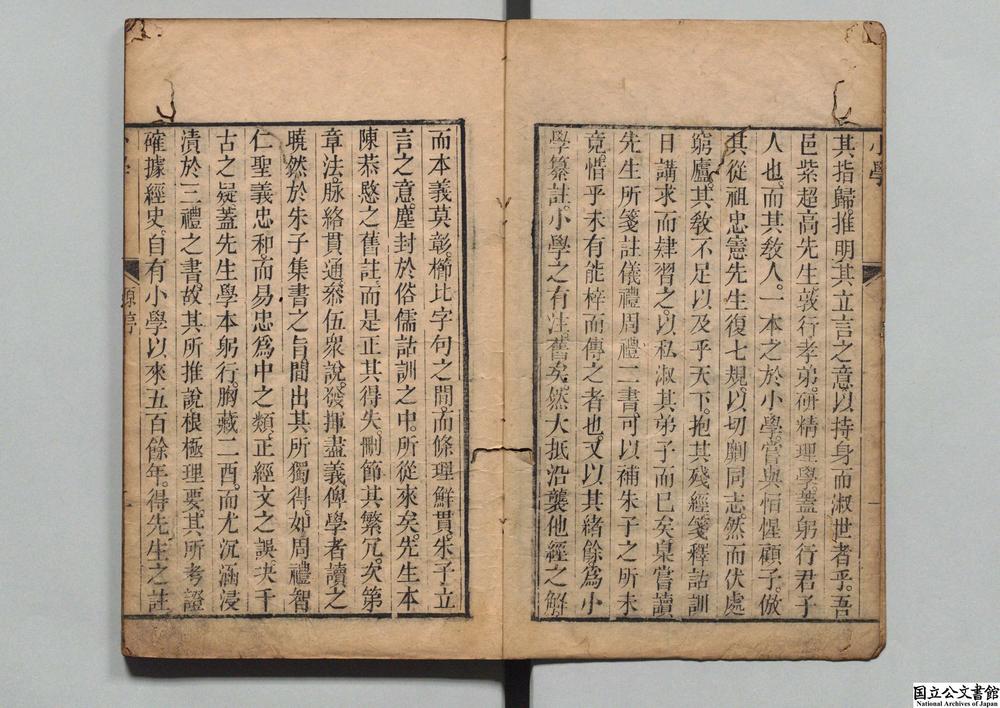 小學
其指歸推明其立言之意以持身而淑世者乎吾
邑紫超高先生敦行孝弟研精理學蓋躬行君子
人也而其教人一本之於小學嘗與恒惺顧子倣
其從祖忠憲先生復七規以切劘同志然而伏處
窮廬其教不足以及乎天下抱其殘經箋釋詁訓
日講求而肄習之以私淑其弟子而已矣㮚嘗讀
先生所箋註儀禮周禮二書可以補朱子之所未
竟惜乎未有能梓而傳之者也又以其緒餘為小
學纂註小學之有注舊矣然大抵沿襲他經之解
而本義莫彰櫛比字句之間而條理鮮貫朱子立
言之意塵封於俗儒詁訓之中所從來矣先生本
陳恭愍之舊註而是正其得失刪節其繁冗次第
章法脉絡貫通叅伍眾說發揮盡義俾學者讀之
曉然於朱子集書之旨間出其所獨得如周禮智
仁聖義忠和而易忠為中之類正經文之誤决千
古之疑蓋先生學本躬行胸藏二酉而尤沉涵浸
漬於三禮之書故其所推說根極理要其所考證
確據經史自有小學以來五百餘年得先生之註
国立公文書館
National Archives of Japan